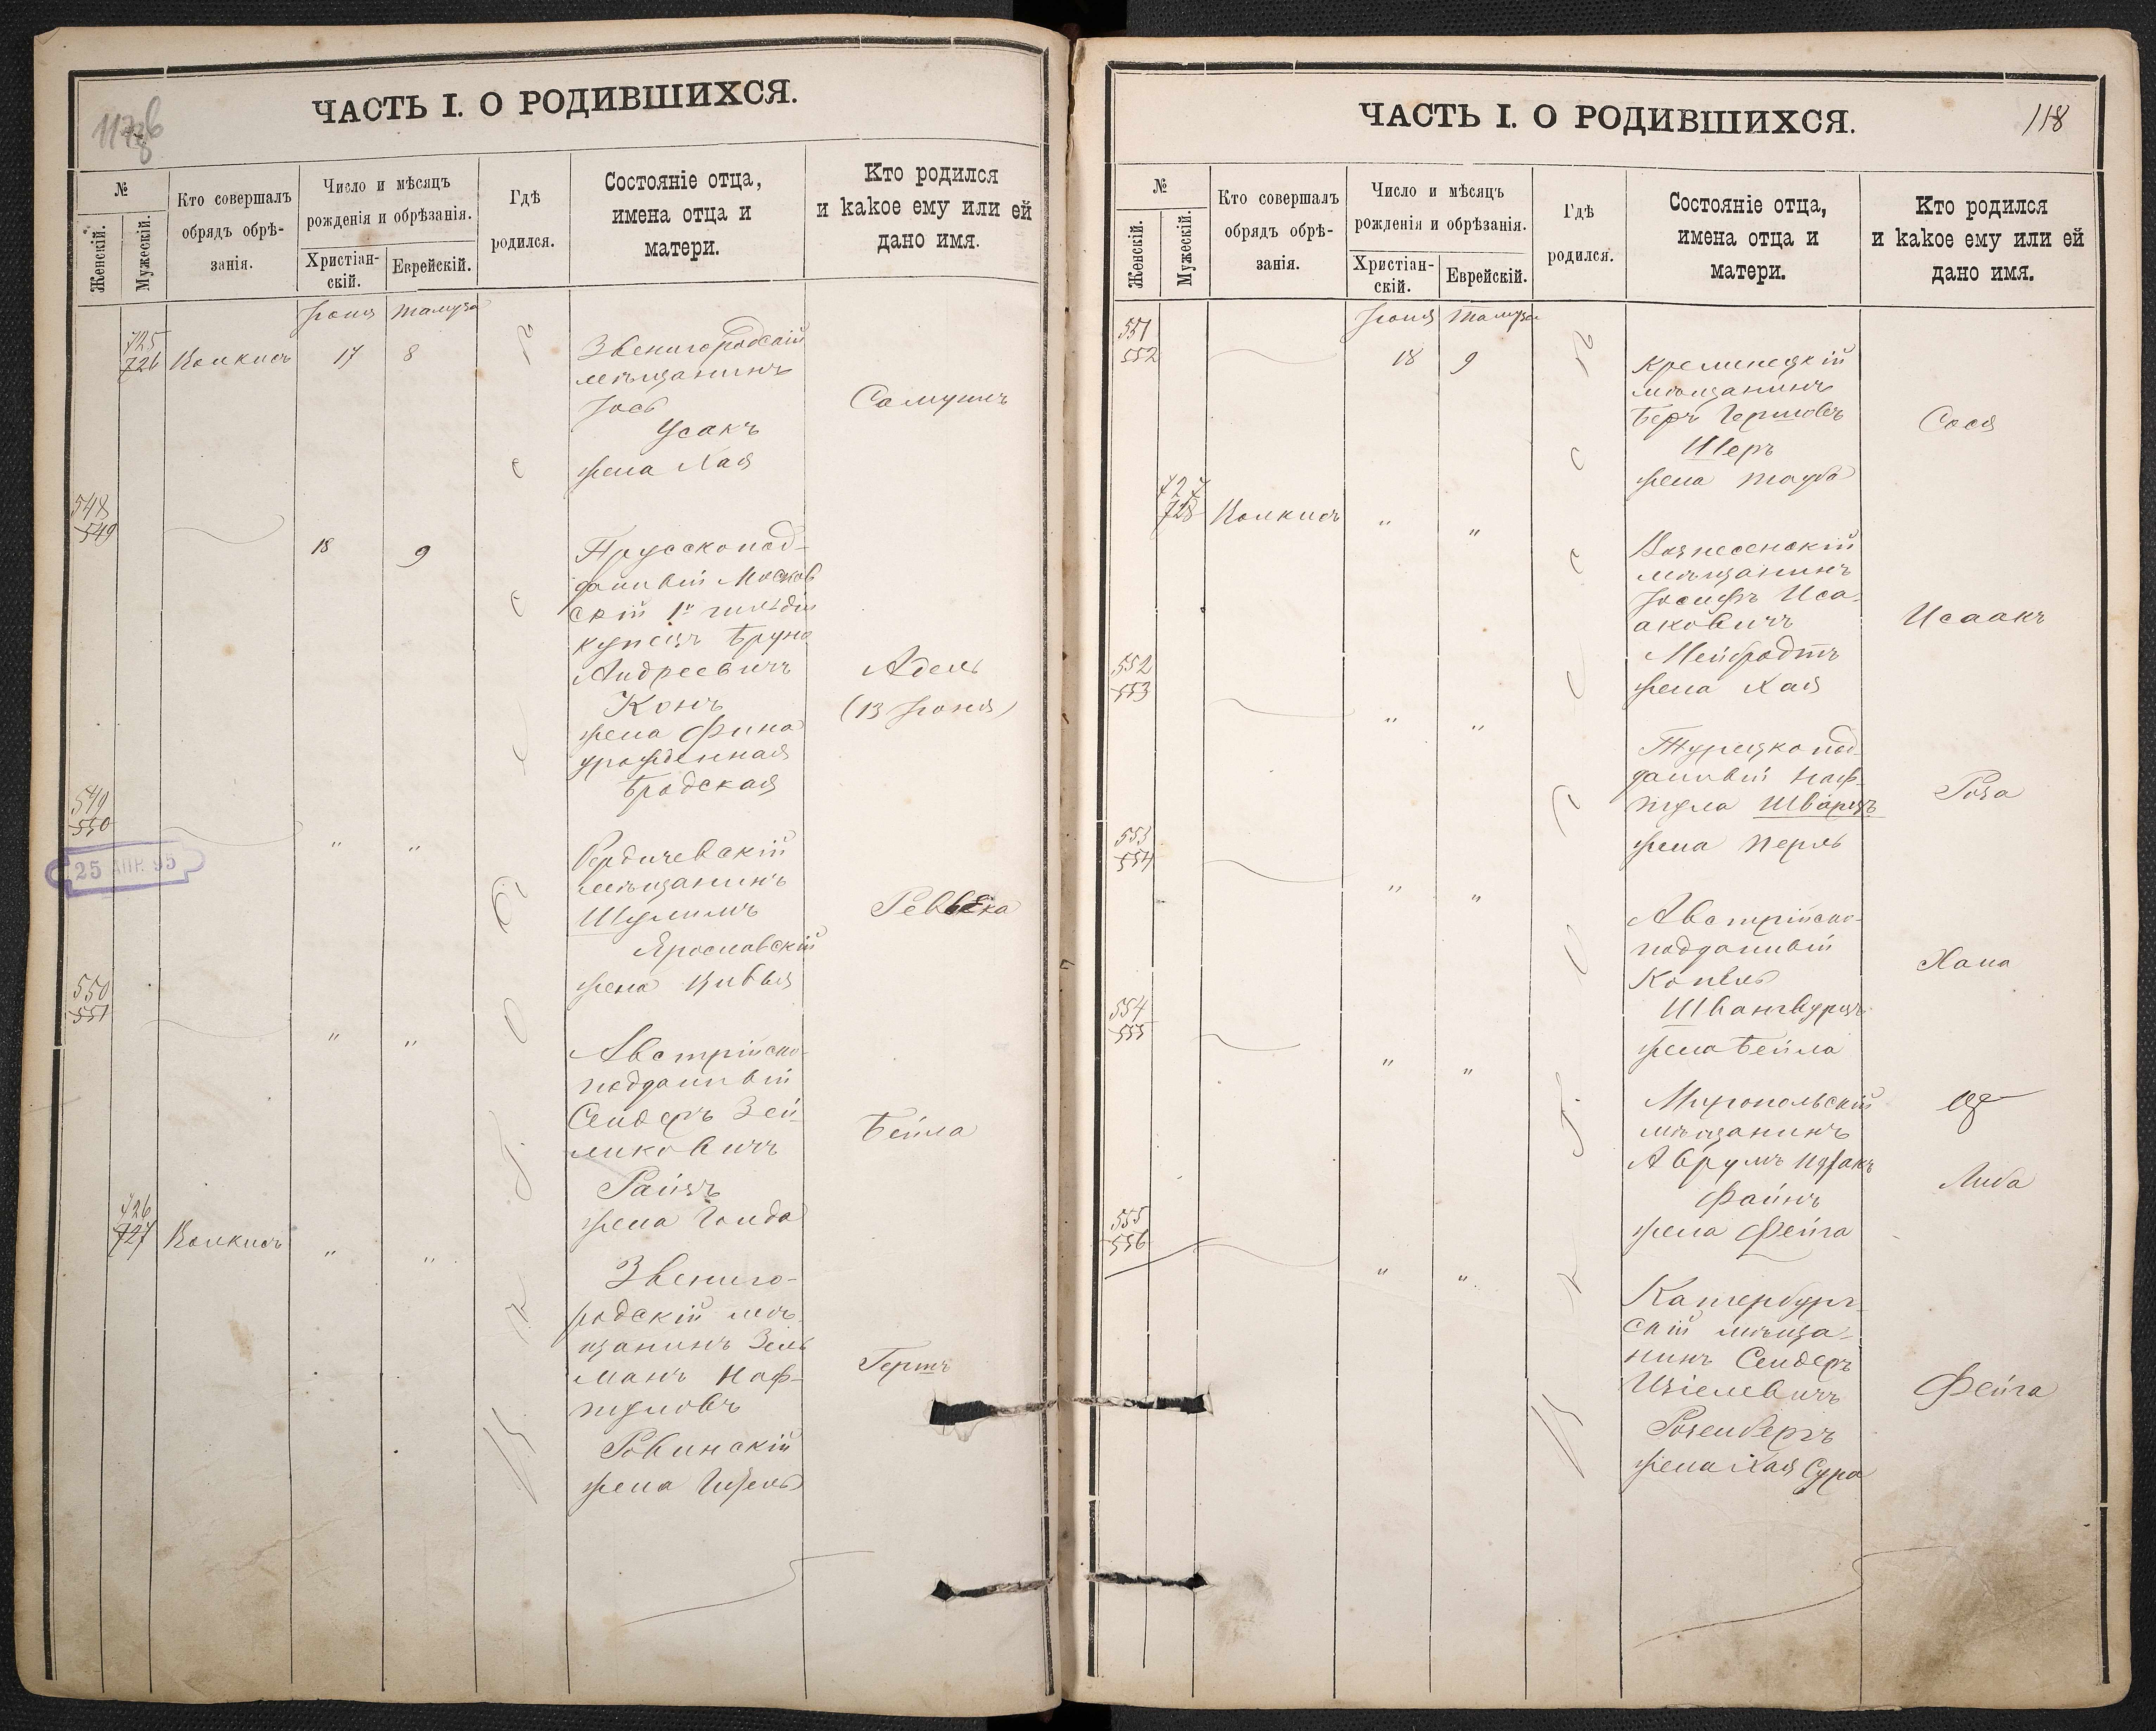 ЧАСТЬ I. О РОДИВШИХСЯ.
№
Женскій.
Мужескій.
Кто совершалъ
обрядъ обрѣ-
занія.
Число и мѣсяцъ
рожденія и обрѣзанія.
Христіан-
скій.
Еврейскій.
Гдѣ
родился.
Состояніе отца,
имена отца и
матери.
Кто родился
и какое ему или ей
дано имя.
Іюня Тамуза
725
726
17 8
Звенигородскій
мѣщанинъ
Іось
Усакъ
жена Хая
Самуилъ
548
549
18 9
Прусскопод-
данный Москов
скій 1й гильдіи
купецъ Бруно
Андреевичъ
Конъ
жена Фина
урожденная
Бродская
Адель
(13 Іюня)
549
550
25 АПР. 95
" "
Бердичевскій
мѣщанинъ
Шулимъ
Ярославскій
жена Ривья
Ревекка
550
551
" "
Австрійско-
подданный
Сендеръ Зей-
ликовичъ
Райзъ
жена Голда
Бейла
726
727
" "
Звениго-
родскій мѣ-
щанинъ Зель
манъ Наф-
туловъ
Ровинскій
жена
Гершъ
ЧАСТЬ I. О РОДИВШИХСЯ.
118
№
Женскій.
Мужескій.
Кто совершалъ
обрядъ обрѣ-
занія.
Число и мѣсяцъ
рожденія и обрѣзанія.
Христіан-
скій.
Еврейскій.
Гдѣ
родился.
Состояніе отца,
имена отца и
матери.
Кто родился
и какое ему или ей
дано имя.
Іюня Тамуза
551
552
18 9
Кременецкій
мѣщанинъ
Беръ Гершовъ
Шеръ
жена Тауба
Сося
727
728
" "
Вознесенскій
мѣщанинъ
Іосифъ Иса-
аковичъ
Мейбродтъ
жена Хая
Исаакъ
552
553
" "
Турецкопод
данный Наф-
тула Шварцъ
жена Перль
Роза
553
554
" "
Австрійско-
подданный
Копель
жена Бейла
Хана
554
555
" "
Миропольскій
мѣщанинъ
Аврумъ Ицхакъ
Файнъ
жена Фейга
Либа
555
556
" "
Катербург-
скій мѣща-
нинъ Сендеръ
Розенбергъ
жена Хая Сура
Фейга